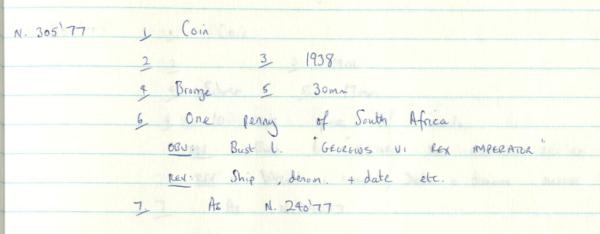 N. 305'77 1 Coin
2 3 1938
4 Bronze 5 30mm
6 One penny of South Africa.
OBV: Bust l. "GEORGIVS VI REX IMPERATOR"
REV: Ship, denom. + date etc.
7 As N. 240'77